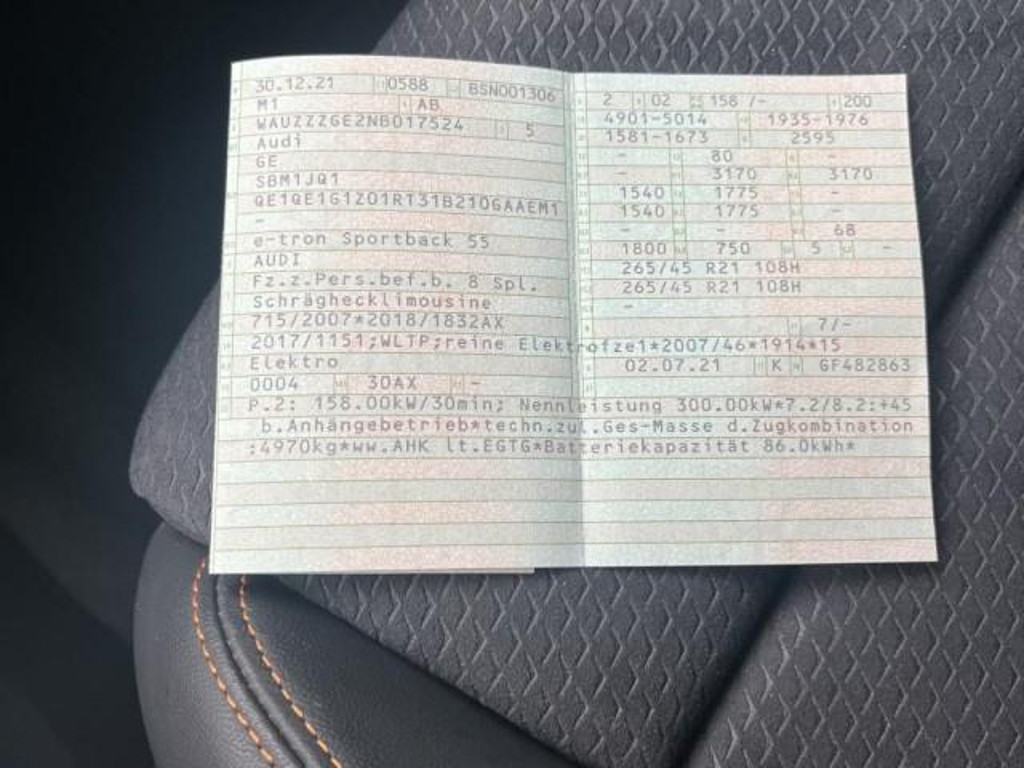 30.12.21 0588 BSN001306
M1 AB
WAUZZZGE2NB017524 5
Audi
GE
SBM1JQ1
QE1QE1G1Z01R131B2106AAEM1
-
e-tron Sportback 55
AUDI
Fz.z.Pers.bef.b. 8 Spl.
Schräghecklimousine
715/2007*2018/1832AX
2017/1151;WLTP;reine Elektrofz
Elektro
0004 30AX -
2 02 158 /- 200
4901-5014 1935-1976
1581-1673 2595
- 80 -
- 3170 3170
1540 1775 -
1540 1775 -
- - 68
1800 750 5 -
265/45 R21 108H
265/45 R21 108H
-
7/-
e1*2007/46*1914*15
02.07.21 K GF482863
P.2: 158.00kW/30min; Nennleistung 300.00kW*7.2/8.2:+45
b.Anhängebetrieb*techn.zul.Ges-Masse d.Zugkombination
:4970kg*ww.AHK lt.EGTG*Batteriekapazität 86.0kWh*